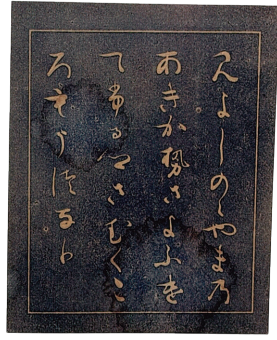 みよしのゝやまの
あきか勢さよふけ
てふるさとさむくこ
ろもうつなり